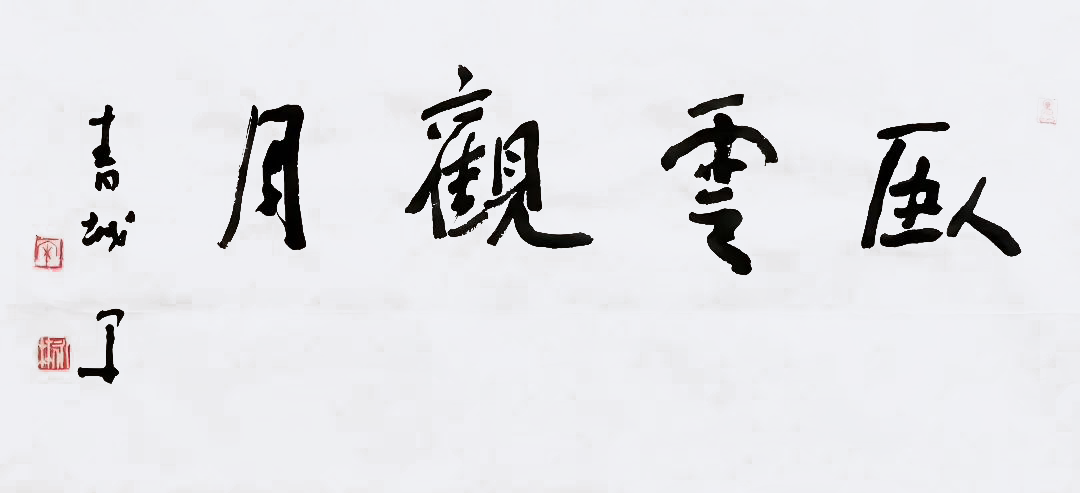 臥雲觀月
青城